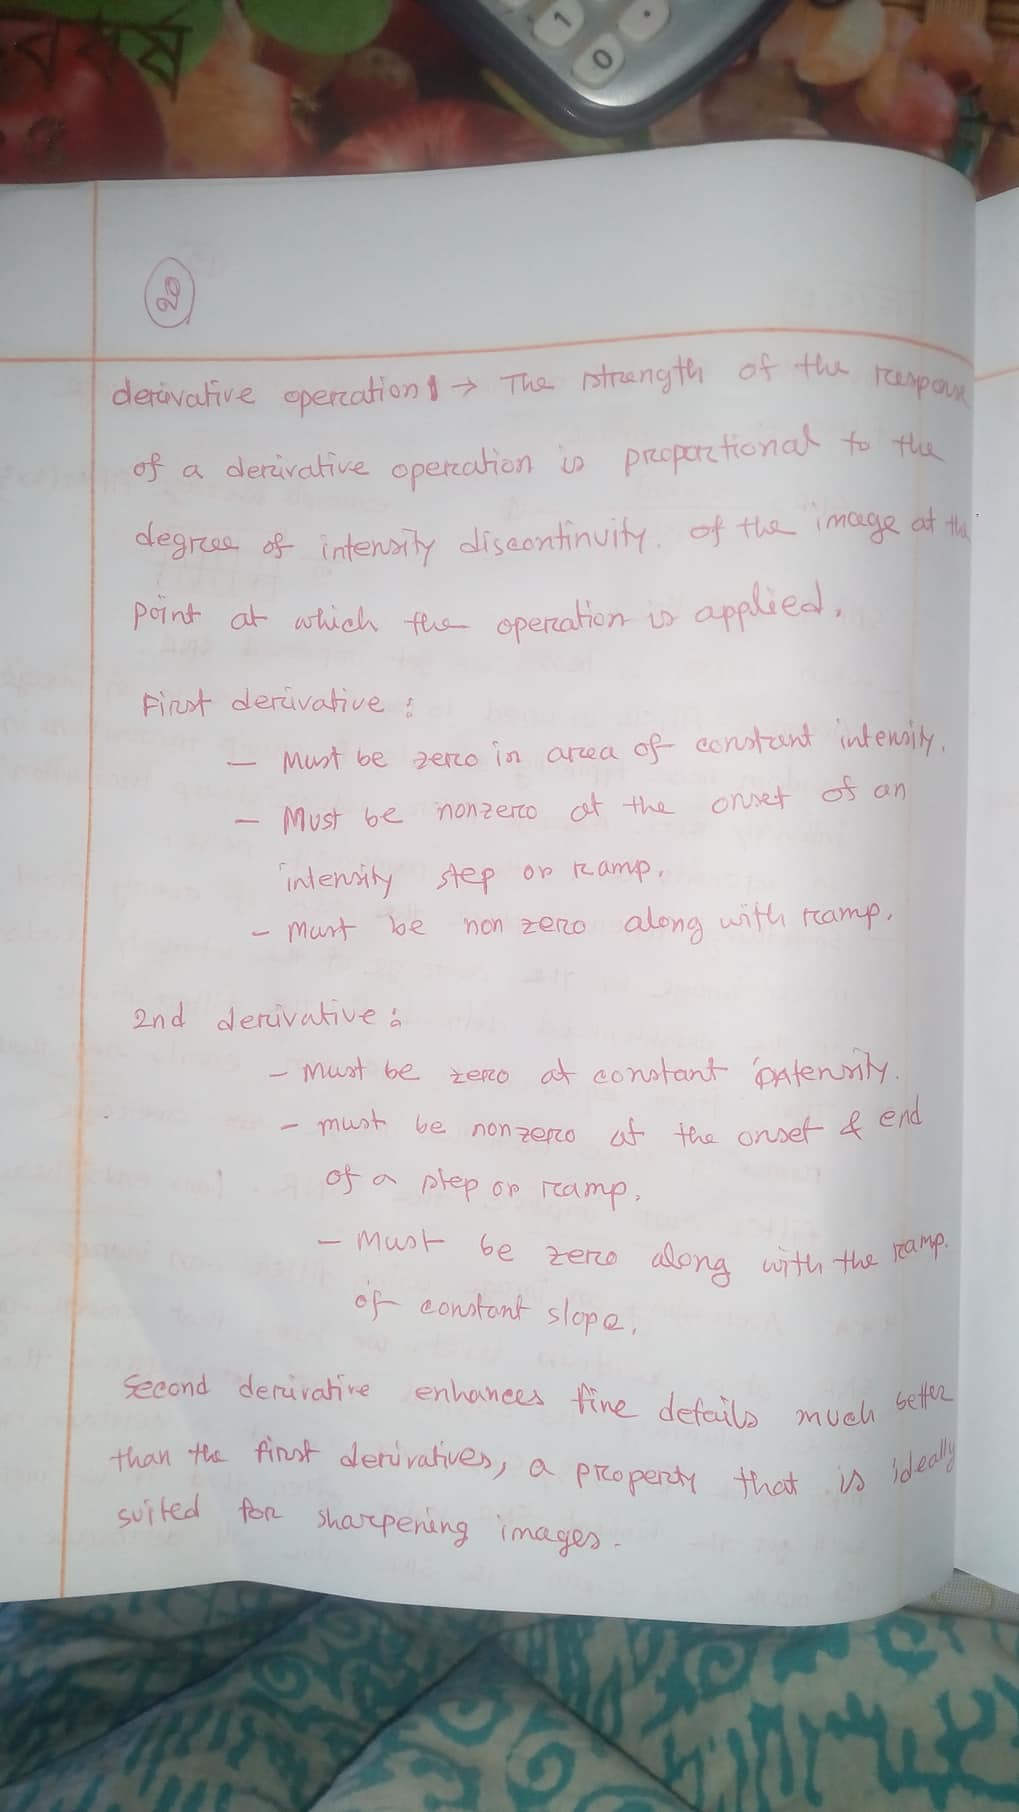 1
.
0
২০
derivative operation → The strength of the response
of a derivative operation is proportional to the
degree of intensity discontinuity. of the image at the
point at which the operation is applied.
First derivative :
- Must be zero in area of constant intensity.
- Must be nonzero at the onset of an
intensity step or ramp.
- must be non zero along with ramp.
2nd derivative :
- Must be zero at constant intensity.
- must be nonzero at the onset & end
of a step or ramp.
- Must be zero along with the ramp.
of constant slope.
Second derivative enhances fine details much better
than the first derivatives, a property that is ideally
suited for sharpening images.